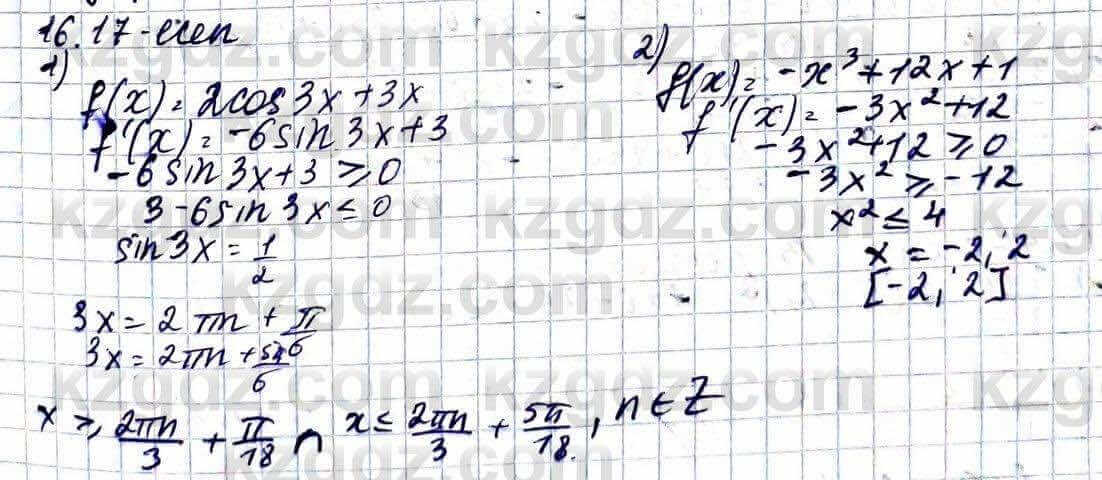 16.17-есеп
1)
f(x) = 2cos3x+3x
f'(x) = -6sin3x+3
-6sin3x+3 ⩾ 0
3-6sin3x ≤ 0
sin3x = 1/2
3x = 2πn + π/6
3x = 2πn + 5π/6
x ⩾, 2πn/3 + π/18 ∩ x ≤ 2πn/3 + 5π/18., n ∈ Z
2)
f(x) = -x³+12x+1
f'(x) = -3x²+12
-3x²+12 ⩾ 0
-3x² ⩾ -12
x² ≤ 4
x = -2, 2
[-2, 2]
kzgdz.com